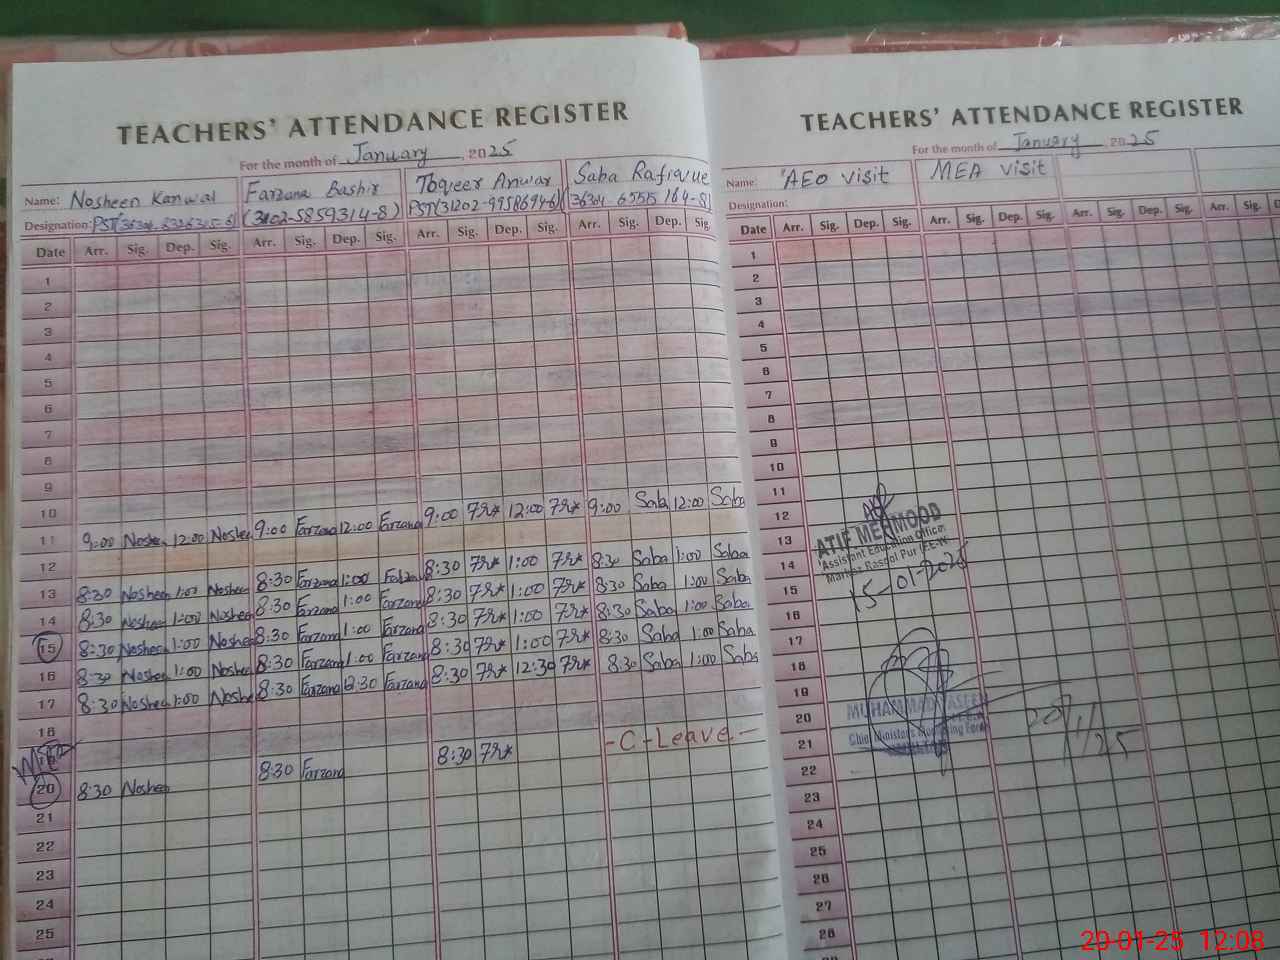 TEACHERS' ATTENDANCE REGISTER
For the month of January, 2025
Name: Nosheen Kanwal Farzana Bashir Toqeer Anwar Saba Rafique
Designation: PST (3102-5859314-8) PST(31202-9958694-6) (36304 6555164-8)
Date Arr. Sig. Dep. Sig. Arr. Sig. Dep. Sig. Arr. Sig. Dep. Sig. Arr. Sig. Dep. Sig.
1
2
3
4
5
6
7
8
9
10
11 9:00 Noshee 12:00 Noshee 9:00 Farzana 12:00 Farzana 9:00 12:00 9:00 Saba 12:00 Saba
12
13 8:30 Nosheen 1:00 Noshee 8:30 Farzana 1:00 Farzana 8:30 1:00 8:30 Saba 1:00 Saba
14 8:30 Nosheen 1:00 Noshee 8:30 Farzana 1:00 Farzana 8:30 1:00 8:30 Saba 1:00 Saba
15 8:30 Nosheen 1:00 Noshee 8:30 Farzana 1:00 Farzana 8:30 1:00 8:30 Saba 1:00 Saba
16 8:30 Nosheen 1:00 Noshee 8:30 Farzana 1:00 Farzana 8:30 1:00 8:30 Saba 1:00 Saba
17 8:30 Nosheen 1:00 Noshee 8:30 Farzana 12:30 Farzana 8:30 12:30 8:30 Saba 1:00 Saba
18
20 8:30 Nosheen 8:30 Farzana 8:30 -C-Leave-
21
22
23
24
25
TEACHERS' ATTENDANCE REGISTER
For the month of January, 2025
Name: AEO visit MEA visit
Designation:
Date Arr. Sig. Dep. Sig. Arr. Sig. Dep. Sig. Arr. Sig. Dep. Sig. Arr. Sig.
1
2
3
4
5
6
7
8
9
10
11
12
13
14
15
16
17
18
19
20
21
22
23
24
25
26
27
28
ATIF MEHMOOD
Assistant Education Officer
Markaz Rasool Pur (EE-W)
15-01-2025
MUHAMMAD
Chief Minister's Monitoring Force
20/1/25
20-01-25 12:08